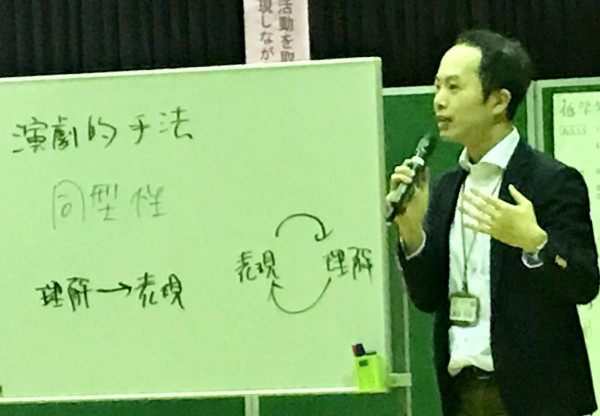 活動を取
現しなが
演劇的手法
同型性
理解→表現
表現 理解